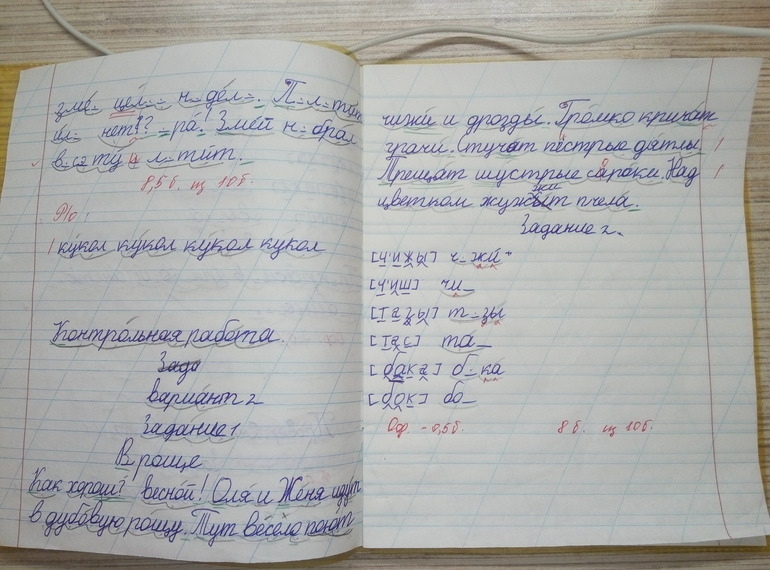 зме- цел-- н-дел-. П-л-тит
ил- нет!? -ра! Змей н-брал
в-сату и л-тит.
8,5 б. из 10 б.
Р/о:
кукол кукол кукол кукол
Контрольная работа.
вариант 2
Задание 1
В роще
Как хорош? весной! Оля и Женя идут
в дубовую рощу. Тут весело поют
чижи и дрозды. Громко кричат
грачи. Стучат пёстрые дятлы.
Трещат шустрые сороки. Над
цветком жужжит пчела.
Задание 2.
[ч'ижы] ч-жи
[ч'иш] чи_
[тазы] т-зы
[тас] та_
[бака] б-ка
[бок] бо_
Оф. -0,5 б. 8 б. из 10 б.